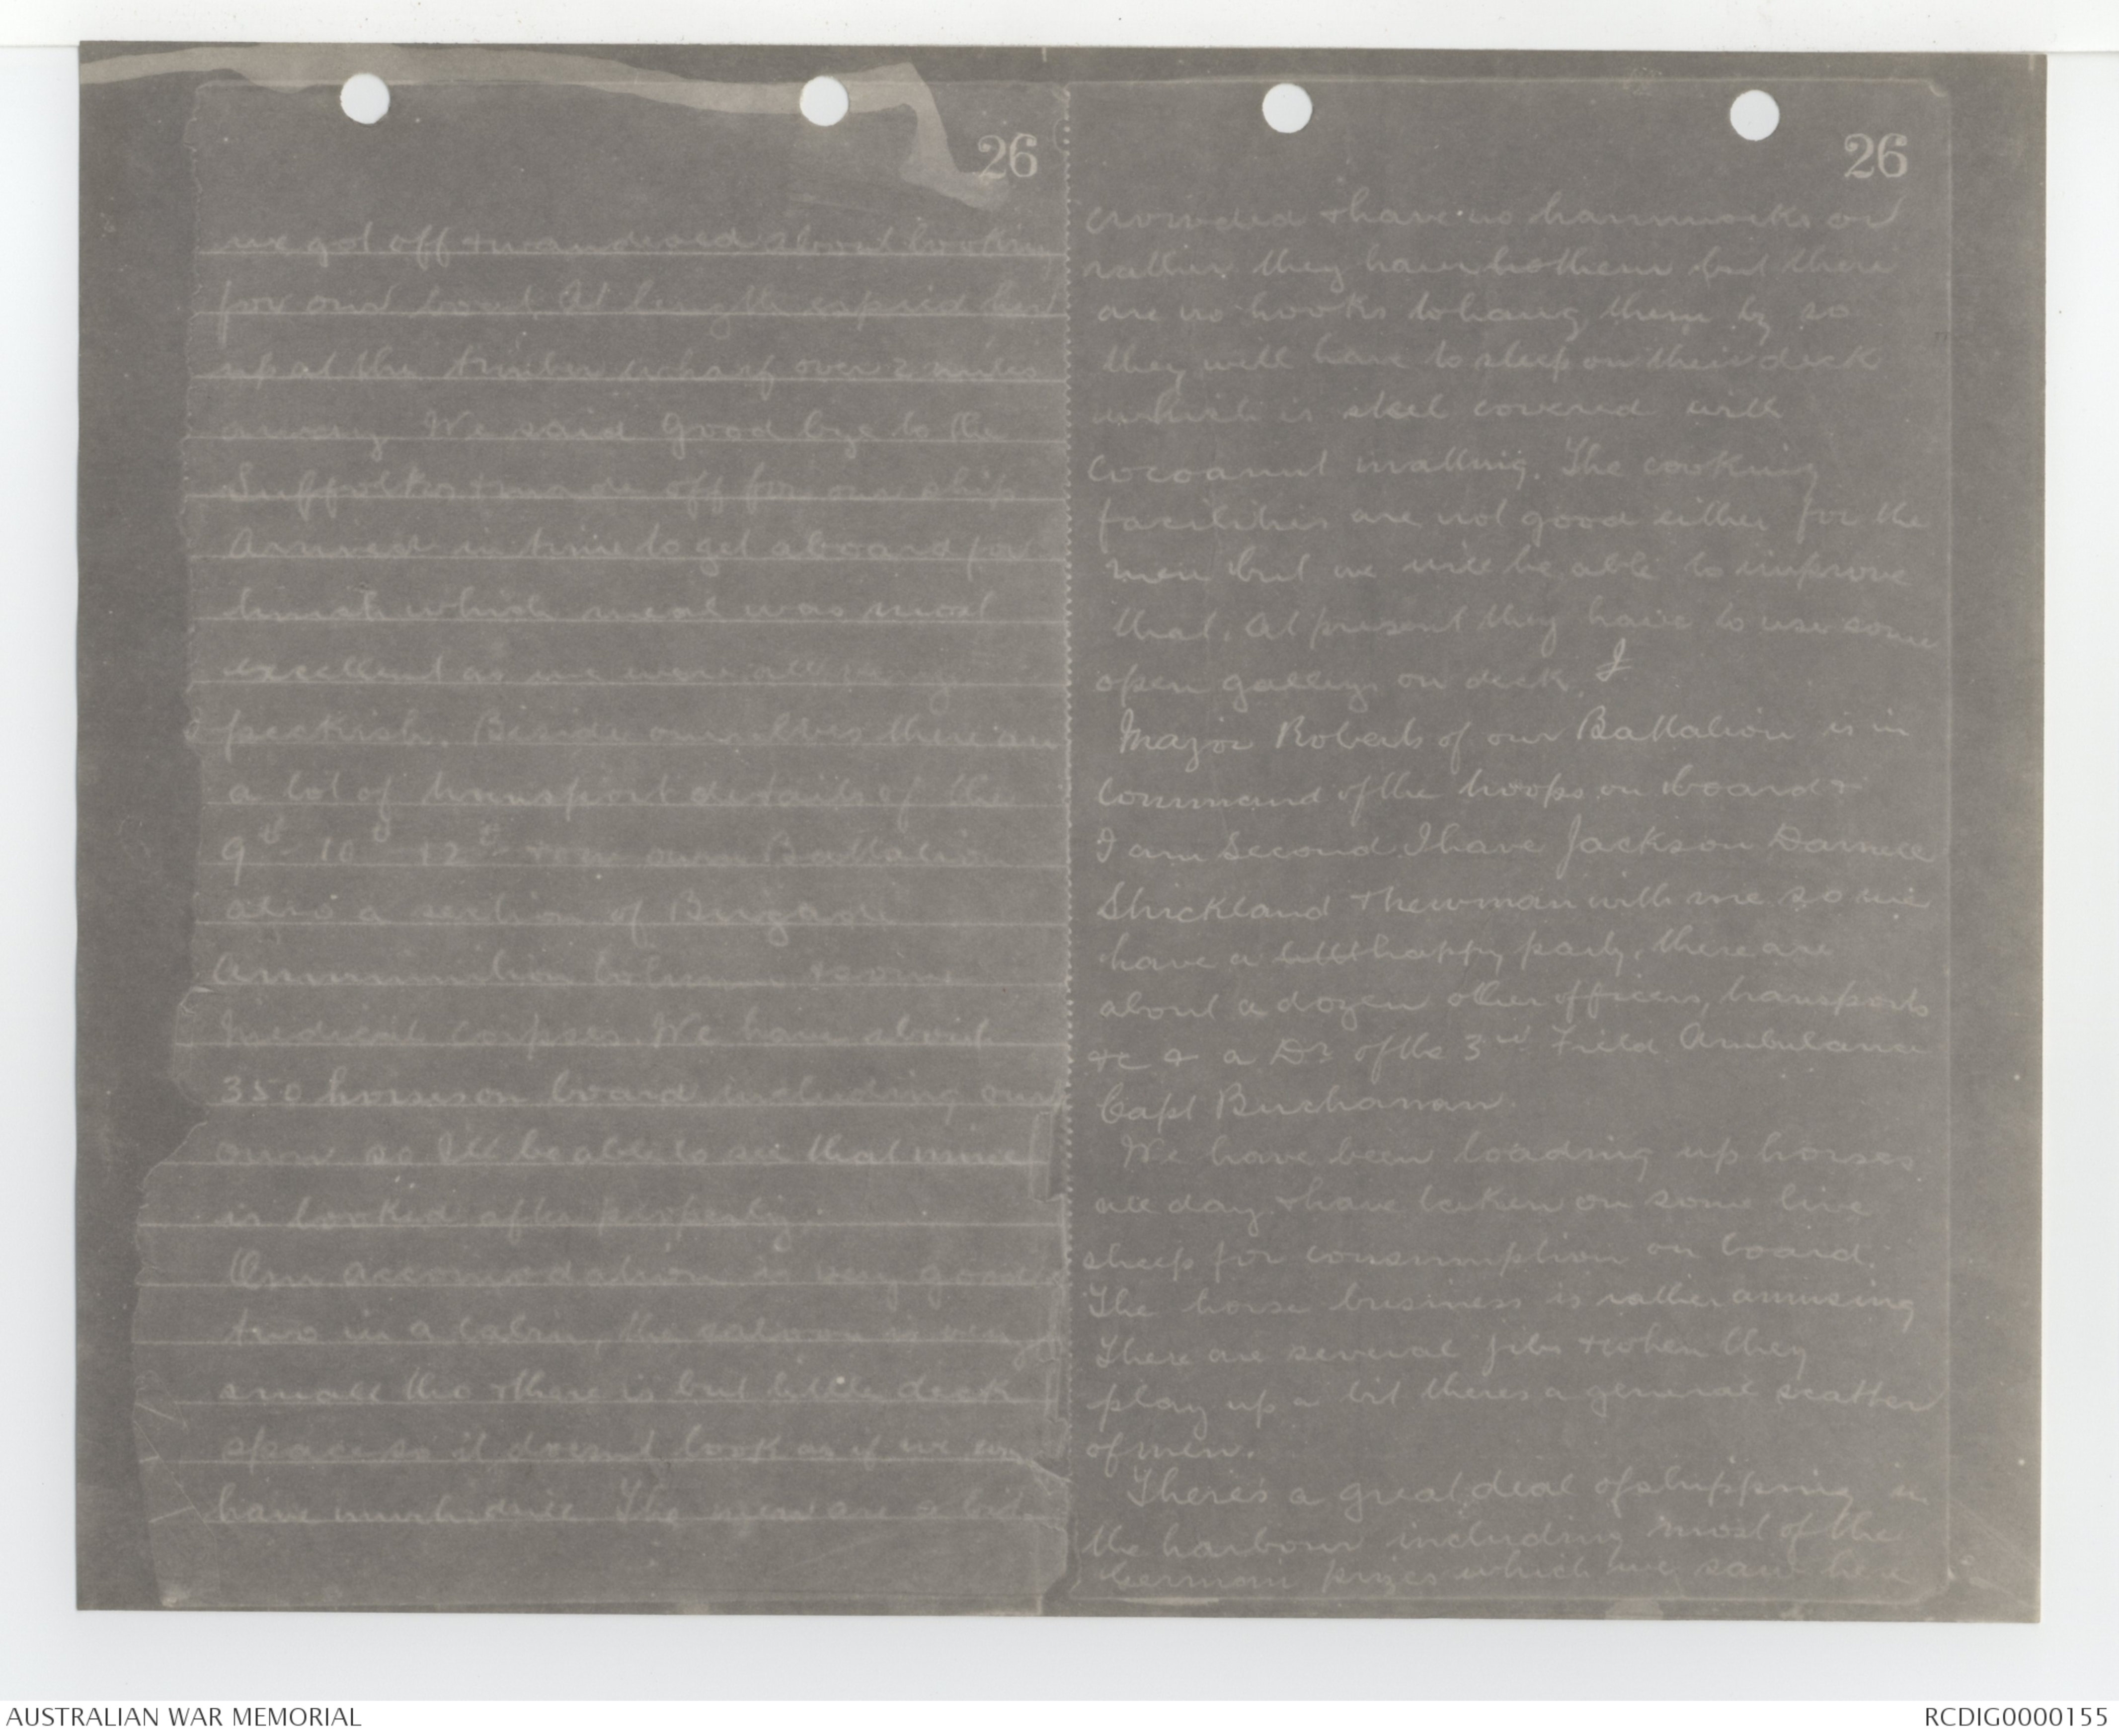 26
we got off & wandered about looking
for our boat. At length espied her
up at the timber wharf over 2 miles
away. We said Good bye to the
Suffolks & made off for our ship
Arrived in time to get aboard for
lunch which meal was most
excellent as we were all very
peckish. Beside ourselves there are
a lot of transport details of the
9th 10th 12th & our own Battalion
also a section of Brigade
Ammunition Column & some
Medical corpses. We have about
350 horses on board including our
own so I'll be able to see that mine
is looked after properly.
Our accomodation is very good
two in a cabin, the saloon is very
small tho & there is but little deck
space so it doesn't look as if we
have much drill. The men are a bit
26
crowded & have no hammocks or
rather they have hothem but there
are no hooks to hang them by so
they will have to sleep on their deck
which is steel covered with
cocoanut matting. The cooking
facilities are not good either for the
men but we will be able to improve
that. At present they have to use some
open galleys on deck. I
Major Roberts of our Battalion is in
command of the troops on board &
I am Second. I have Jackson Darnell
Strickland & Newman with me so we
have a little happy party. there are
about a dozen other officers, transports
&c & a Dr of the 3rd Field Ambulance
Capt Buchanan.
We have been loading up horses
all day & have taken on some live
sheep for consumption on board.
The horse business is rather amusing
There are several jibs & when they
play up a bit theres a general scatter
of men.
There's a great deal of shipping in
the harbour including most of the
German prizes which we saw here
AUSTRALIAN WAR MEMORIAL
RCDIG0000155